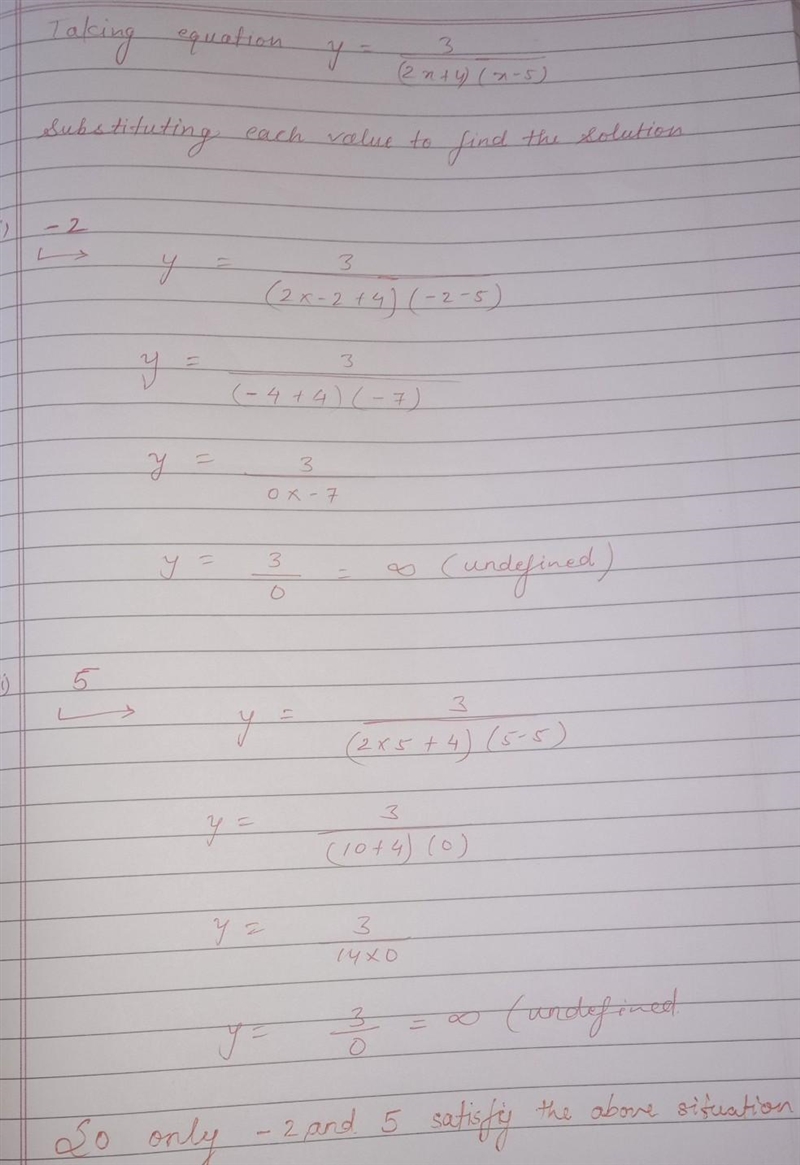 Taking equation y = 3 / (2x+4)(x-5)
Substituting each value to find the solution
) -2
y = 3 / (2x-2+4)(-2-5)
y = 3 / (-4+4)(-7)
y = 3 / 0x-7
y = 3 / 0 = ∞ (undefined)
i) 5
y = 3 / (2x5+4)(5-5)
y = 3 / (10+4)(0)
y = 3 / 14x0
y = 3 / 0 = ∞ (undefined
So only -2 and 5 satisfy the above situation